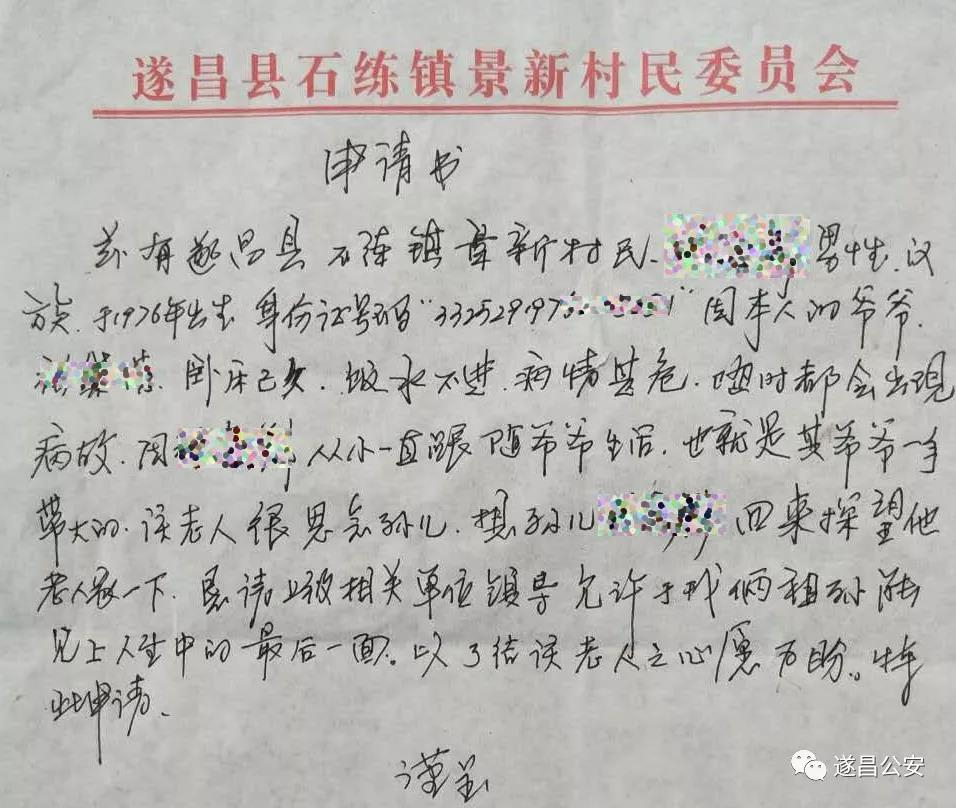 遂昌县石练镇景新村民委员会
申请书
兹有遂昌县石练镇景新村民 男性.汉
族.于1976年出生 身份证号码"332529197 1"因本人的爷爷.
卧床已久.饭水不进.病情其危.随时都会出现
病故.因 从小一直跟随爷爷生活.也就是其爷爷一手
带大的.该老人很思念孙儿.想孙儿 回来探望他
老人家一下.恳请上级相关单位领导允许于我俩祖孙
见上人生中的最后一面。以了结该老人之心愿为盼。特
此申请.
谨呈
遂昌公安